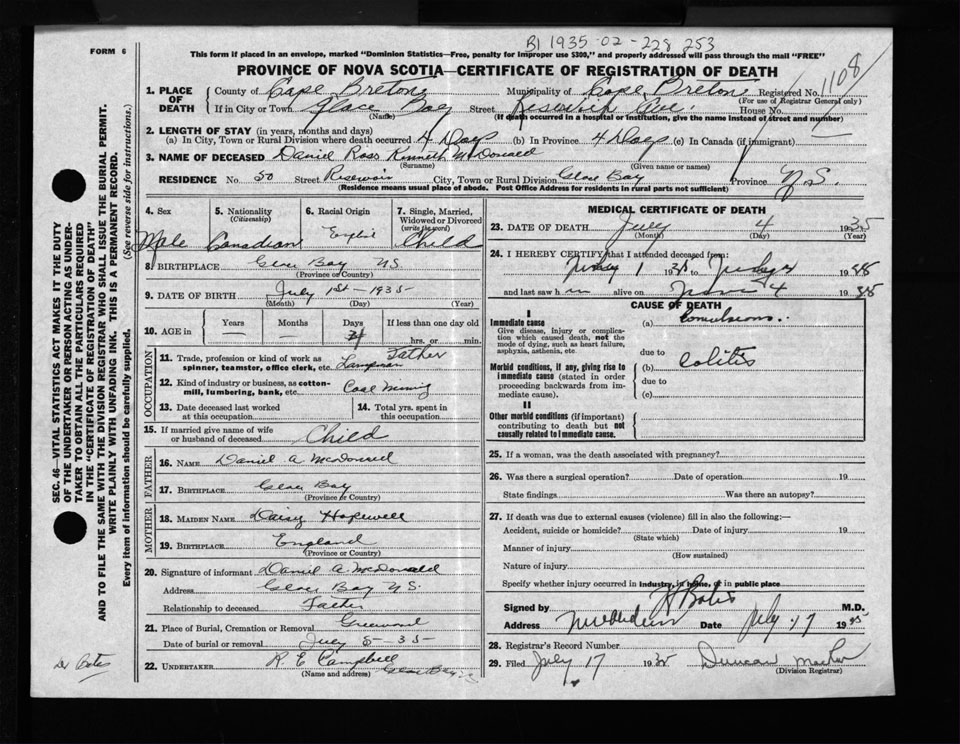 B1 1935-02-228 253
1108
FORM 6
This form if placed in an envelope, marked "Dominion Statistics—Free, penalty for improper use $300," and properly addressed will pass through the mail "FREE"
PROVINCE OF NOVA SCOTIA—CERTIFICATE OF REGISTRATION OF DEATH
SEC. 46—VITAL STATISTICS ACT MAKES IT THE DUTY
OF THE UNDERTAKER OR PERSON ACTING AS UNDER-
TAKER TO OBTAIN ALL THE PARTICULARS REQUIRED
IN THE "CERTIFICATE OF REGISTRATION OF DEATH"
AND TO FILE THE SAME WITH THE DIVISION REGISTRAR WHO SHALL ISSUE THE BURIAL PERMIT.
WRITE PLAINLY WITH UNFADING INK. THIS IS A PERMANENT RECORD.
Every item of information should be carefully supplied. (See reverse side for instructions.)
1. PLACE OF DEATH
County of Cape Breton Municipality of Cape Breton Registered No.
(For use of Registrar General only)
If in City or Town Glace Bay Street Reservoir Ave. House No.
(Name) (If death occurred in a hospital or institution, give the name instead of street and number)
2. LENGTH OF STAY (in years, months and days)
(a) In City, Town or Rural Division where death occurred 4 Days (b) In Province 4 Days (c) In Canada (if immigrant)
3. NAME OF DECEASED Daniel Ross Kenneth McDonald
(Surname) (Given name or names)
RESIDENCE No. 50 Street Reservoir City, Town or Rural Division Glace Bay Province N.S.
(Residence means usual place of abode. Post Office Address for residents in rural parts not sufficient)
4. Sex Male
5. Nationality (Citizenship) Canadian
6. Racial Origin
7. Single, Married, Widowed or Divorced (write the word) Child
8. BIRTHPLACE Glace Bay NS
(Province or Country)
9. DATE OF BIRTH July 1st - 1935-
(Month) (Day) (Year)
10. AGE in Years Months Days If less than one day old
hrs. or min.
OCCUPATION
11. Trade, profession or kind of work as spinner, teamster, office clerk, etc. Father Lampman
12. Kind of industry or business, as cotton-mill, lumbering, bank, etc. Coal Mining
13. Date deceased last worked at this occupation
14. Total yrs. spent in this occupation
15. If married give name of wife or husband of deceased Child
FATHER
16. NAME Daniel A McDonald
17. BIRTHPLACE Glace Bay
(Province or Country)
MOTHER
18. MAIDEN NAME Daisy Hopewell
19. BIRTHPLACE England
(Province or Country)
20. Signature of informant Daniel A. McDonald
Address Glace Bay N.S.
Relationship to deceased Father
21. Place of Burial, Cremation or Removal Greenwood
Date of burial or removal July 5 - 35-
22. UNDERTAKER R. E. Campbell Glace Bay
(Name and address)
MEDICAL CERTIFICATE OF DEATH
23. DATE OF DEATH July 4 1935
(Month) (Day) (Year)
24. I HEREBY CERTIFY that I attended deceased from:
1 19 to 4 19
and last saw h alive on 4 19
CAUSE OF DEATH
I
Immediate cause (a) Convulsions.
Give disease, injury or complication which caused death, not the mode of dying, such as heart failure, asphyxia, asthenia, etc.
due to
Morbid conditions, if any, giving rise to immediate cause (stated in order proceeding backwards from immediate cause). (b) Colitis
due to
(c)
II
Other morbid conditions (if important) contributing to death but not causally related to immediate cause.
25. If a woman, was the death associated with pregnancy?
26. Was there a surgical operation? Date of operation 19
State findings Was there an autopsy?
27. If death was due to external causes (violence) fill in also the following:—
Accident, suicide or homicide? Date of injury 19
(State which)
Manner of injury
(How sustained)
Nature of injury
Specify whether injury occurred in industry, in home, or in public place
Signed by M.D.
Address Date July 17 19
28. Registrar's Record Number
29. Filed July 17 1935 Duncan
(Division Registrar)